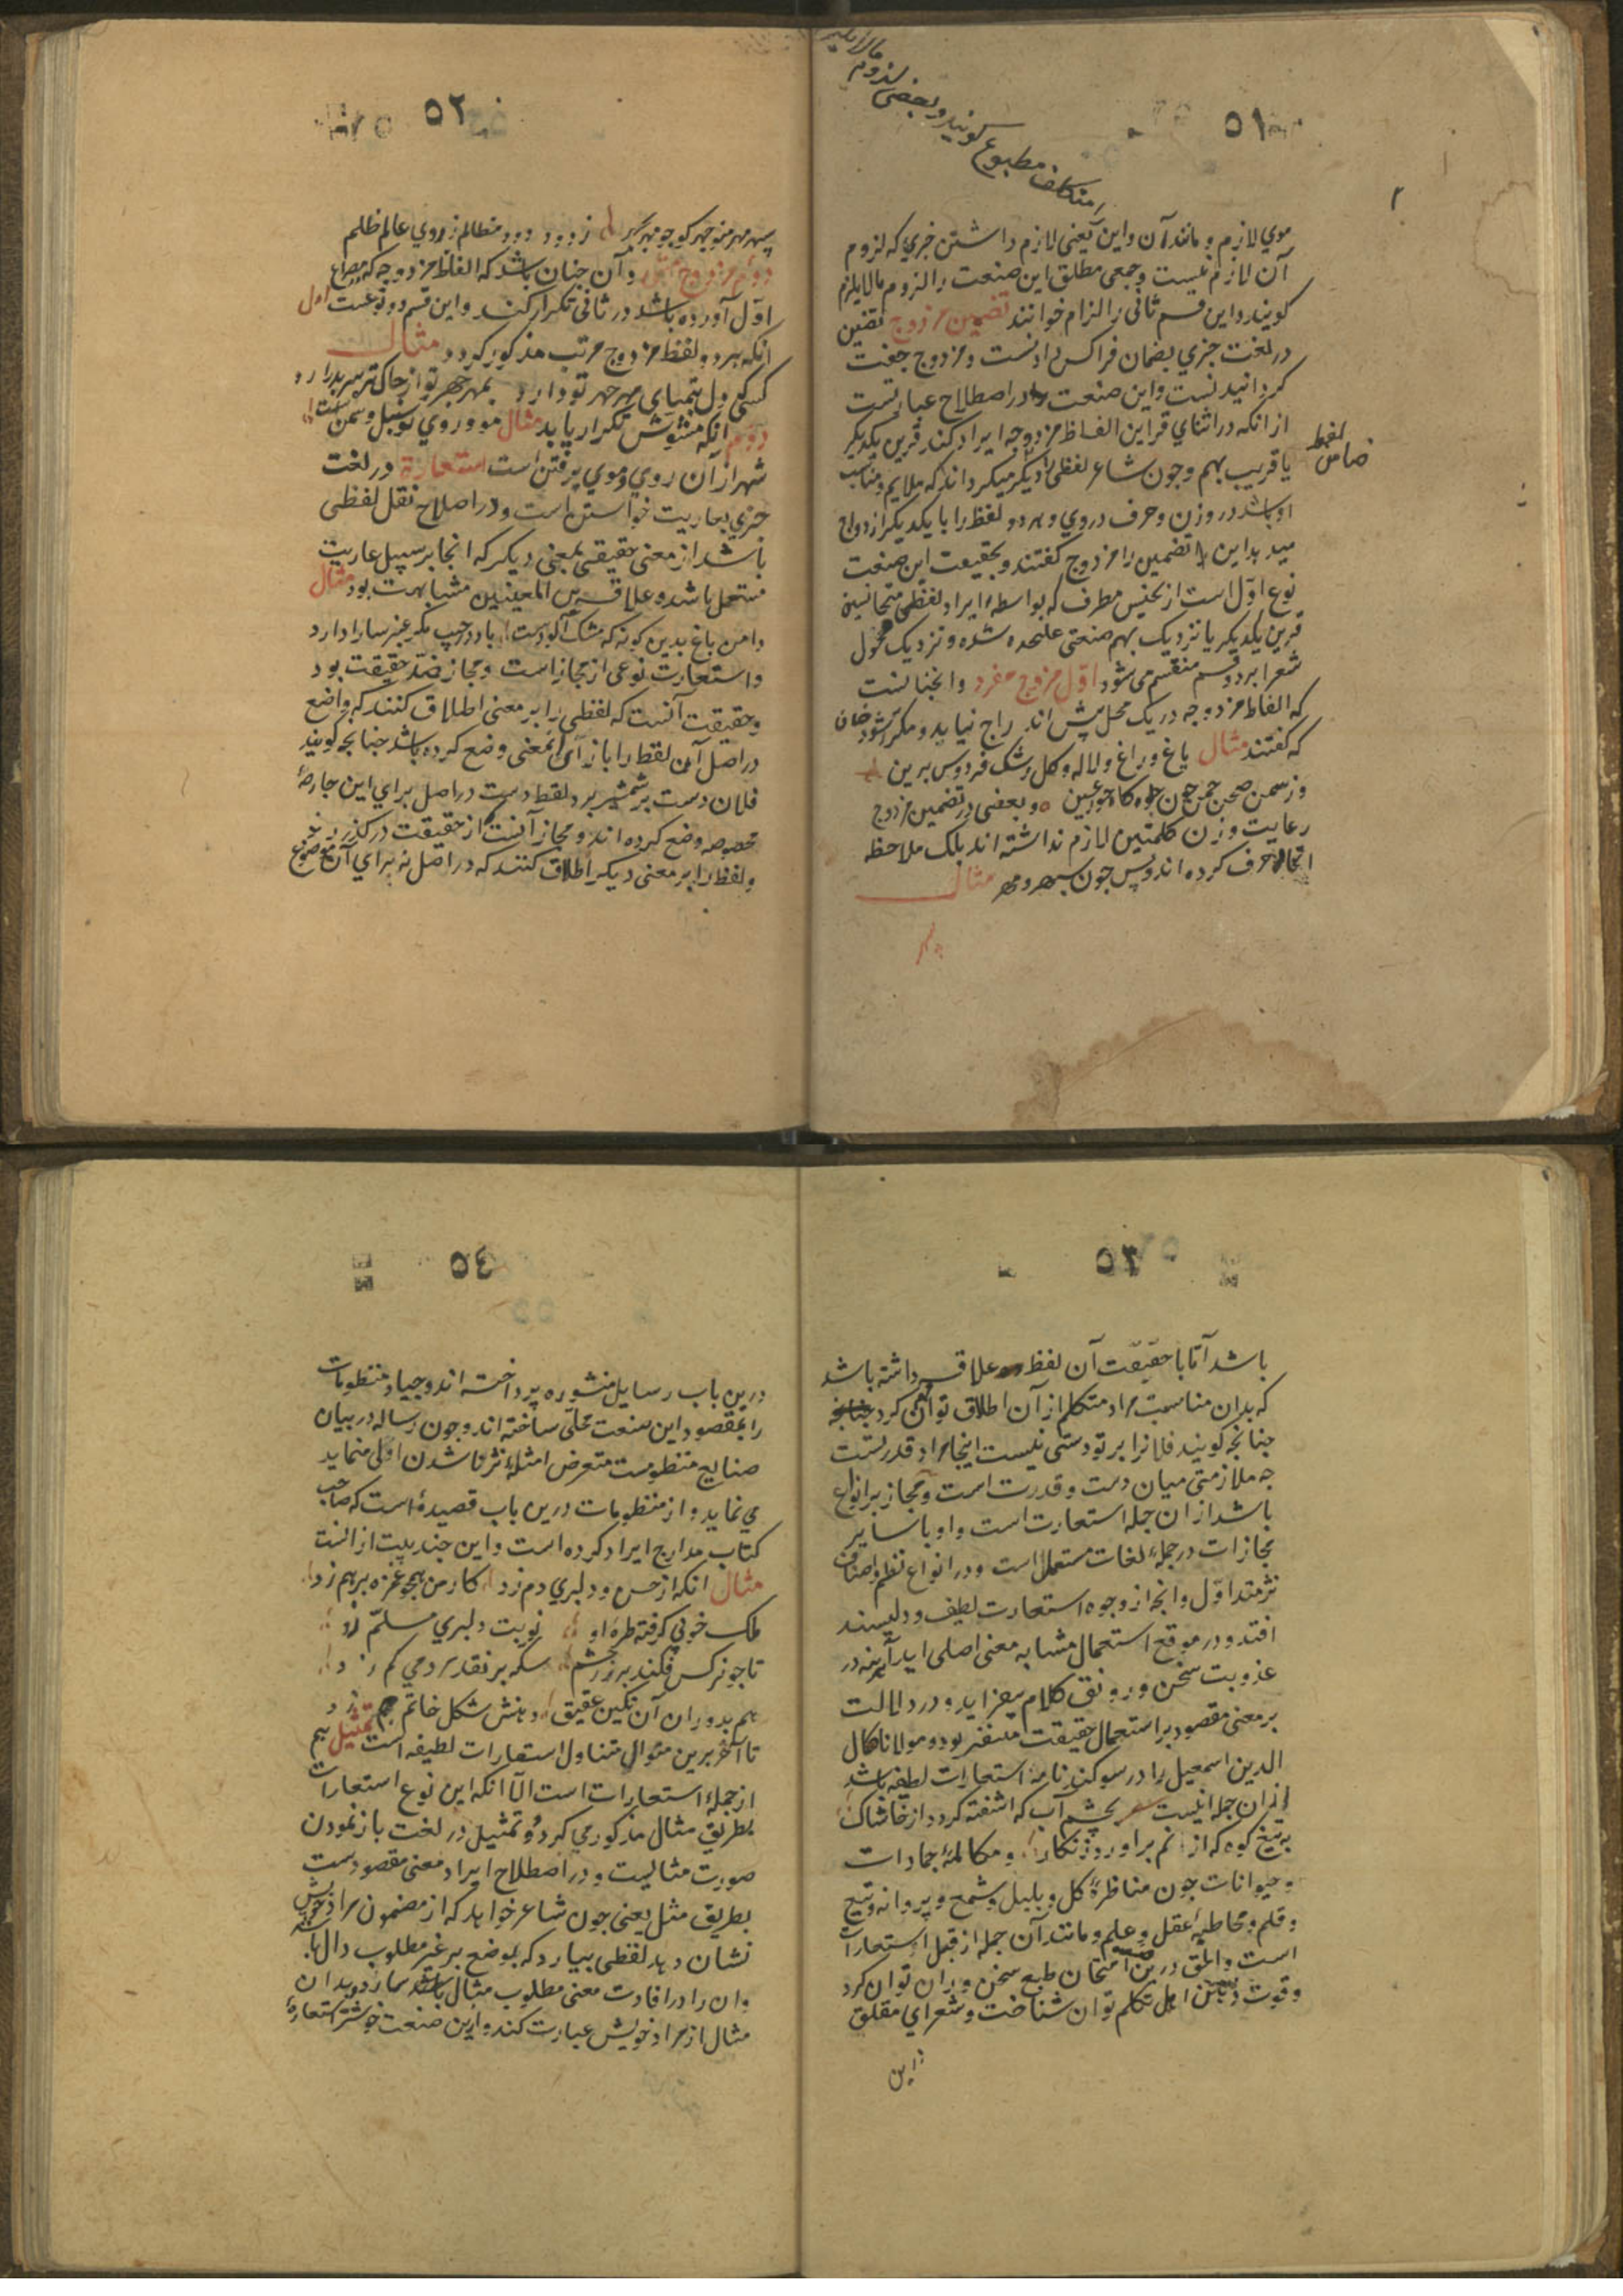 ٥١
متکلف مطبوع کویند و بعضی
موی لازم و مانند آن و این یعنی لازم داشتن چیزی که لزوم
آن لازم نیست و جمعی مطلق این صنعت را لزوم مالایلزم
کویند و این قسم ثانی را التزام خوانند تضمین مزدوج تضمین
در لغت چیزی بضمان فراکسی دادنست و مزدوج جفت
کردانیدنست و این صنعت در اصطلاح عبارتست
از انکه در اثنای قراین الفاظ مزدوجه ایراد کند قرین یکدیکر
یا قریب بهم و چون شاعر لفظی را دیکر میکرداند که ملایم و مناسب
لفظ
او باشد در وزن و حرف روی و هر دو لفظ را با یکدیکر ازدواج
میدهد این را تضمین مزدوج کفتند و بحقیقت این صنعت
نوع اول است از تجنیس مطرف که بواسطهٔ ایراد لفظی متجانسین
قرین یکدیکر یا نزدیک بهم صنعتی علیحده شده و نزدیک فحول
شعرا بر دو قسم منقسم می شود اول مزدوج مفرد و آنچنانست
که الفاظ مزدوجه در یک محل بیش اندراج نیابد و مکرر نشود چنان
که کفتند مثال باغ و راغ و لاله و کل رشک فردوس برین
وز سمن صحن چمن چون جلوه کاه حور عین و بعضی در تضمین مزدوج
رعایت وزن کلمتین لازم نداشته اند بلک ملاحظه
اتحاد حرف کرده اند و بس چون سپهر و مهر مثال
٥٢
سپهر مهر منوچهر کو چو مهر بچهر زدود دود مظالم ز روی عالم ظلم
دوم مزدوج و آن چنان باشد که الفاظ مزدوجه که در مصراع
اول آورده باشد در ثانی تکرار کند و این قسم دو نوعست اول
انکه هر دو لفظ مزدوج مرتب مذکور کردد مثال
کسی کو دل بتمنای مهر چهر تو دارد بمهر چهر تو از خاک تیره سر بدر آرد
دوم انکه مشوش تکرار یابد مثال مو و روی تو سنبل و سمن است
شهر از آن روی و موی پر فتن است استعارة در لغت
چیزی بعاریت خواستن است و در اصلاح نقل لفظی
باشد از معنی حقیقی بمعنی دیکر که انجا بر سبیل عاریت
مستعمل باشد و علاقه بین المعنیین مشابهت بود مثال
دامن باغ بدین کونه که مشک آلودست باد در جیب مکر عنبر سارا دارد
و استعارت نوعی از مجاز است و مجاز ضد حقیقت بود
و حقیقت آنست که لفظی را بر معنی اطلاق کنند که واضع
در اصل آن لفظ را باز آن معنی وضع کرده باشد چنانچه کویند
فلان دست بر شمشیر برد لفظ دست در اصل برای این جارحهٔ
مخصوصه وضع کرده اند و مجاز آنست از حقیقت درکذرند
و لفظ را بر معنی دیکر اطلاق کنند که در اصل نه برای آن موضوع
٥٣
باشد اما با حقیقت آن لفظ علاقه داشته باشد
که بدان مناسبت مراد متکلم از آن اطلاق توان کرد
چنانچه کویند فلانرا بر تو دستی نیست اینجا مراد قدرتست
چه ملازمتی میان دست و قدرت است و مجاز بر انواع
باشد از ان جمله استعارت است و او با سایر
مجازات در جملهٔ لغات مستعمل است و در انواع نظم و اصناف
نثر متداول و انچه از وجوه استعارت لطیف و دلپسند
افتد و در موقع استعمال مشابه معنی اصلی اید آینه در
عذوبت سخن و رونق کلام بیفزاید و در دلالت
بر معنی مقصود بر استعمال حقیقت بود و مولانا کمال
الدین اسمعیل را در سوکند نامه استعارات لطیفه باشد
از ان جمله اینست شعر بچشم آب که اشفته کردد از خاشاک
به تیغ کوه که از نم براورد زنکار و مکالمهٔ جمادات
و حیوانات چون مناظرهٔ کل و بلبل و شمع و پروانه و تیغ
و قلم و مخاطبهٔ عقل و علم و مانند آن جمله از قبیل استعارات
است و الحق درین امتحان طبع سخن وران توان کرد
و قوت ذهن اهل تکلم توان شناخت و شعرای مفلق
این
٥٤
درین باب رسایل منثوره پرداخته اند و جیاد منظومات
را بمقصود این صنعت محلی ساخته اند و چون رساله در بیان
صنایع منظومست متعرض امثلهٔ نثر ناشدن اولی مینماید
می نماید و از منظومات درین باب قصیدهٔ است که صاحب
کتاب مدارج ایراد کرده است و این چند بیت از انست
مثال انکه از حسن و دلبری دم زد کار من همچو غمزه بر هم زد
ملک خوبی کرفته طرهٔ او نوبت دلبری مسلم زد
تا چو نرکس فکند بر زر چشم سکه بر نقد مردمی کم زد
هم بدوران آن نکین عقیق دهنش شکل خاتم جم زد
تا اخر برین منوال متناول استعارات لطیفه است تمثیل هم
از جملهٔ استعارات است الا انکه این نوع استعارات
بطریق مثال مذکور می کردد و تمثیل در لغت باز نمودن
صورت مثالیست و در اصطلاح ایراد معنی مقصودست
بطریق مثل یعنی چون شاعر خواهد که از مضمون مراد خویش
نشان دهد لفظی بیارد که بموضع بر غیر مطلوب دال باشد
و ان را در افادت معنی مطلوب مثال سازد و بدان
مثال از مراد خویش عبارت کند و این صنعت خوشتر استعارهٔ